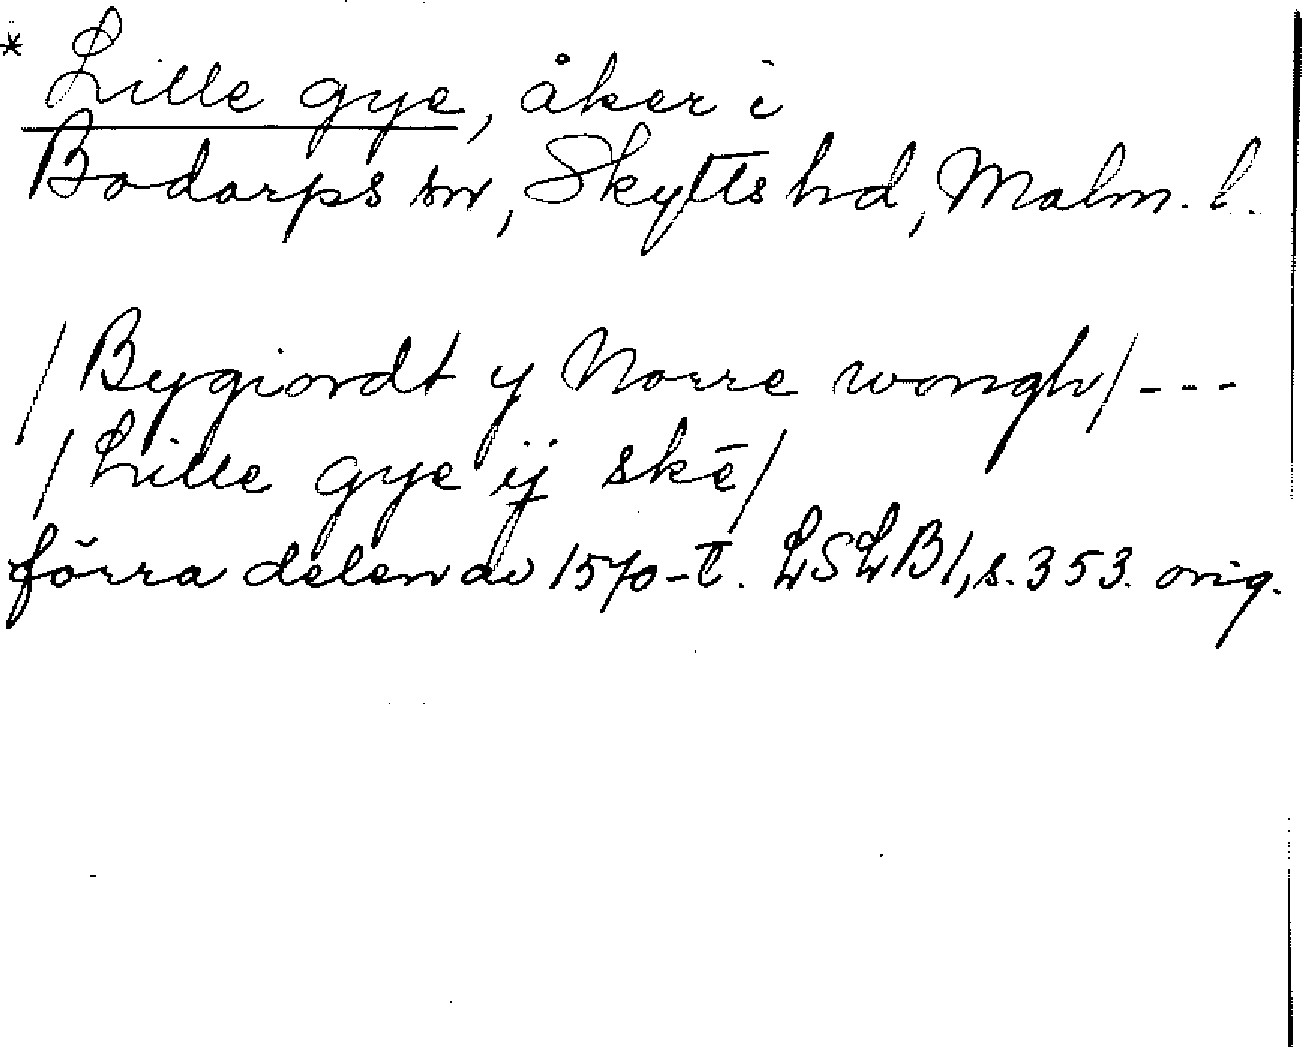 * Lille gye, åker i
Bodarps sn, Skytts hd, Malm. l.
/Bygiordt y Norre wongh/ - - -
/Lille gye ij skē/
förra delen av 1570-t. LSLB1, s. 353. orig.